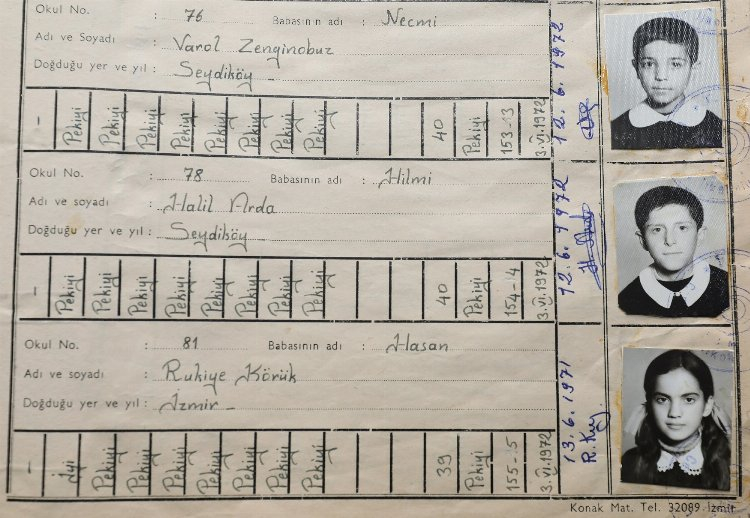 Okul No. : 76 Babasının adı : Necmi
Adı ve Soyadı : Varol Zenginobuz
Doğduğu yer ve yıl : Seydiköy
- Pekiyi Pekiyi Pekiyi Pekiyi Pekiyi Pekiyi Pekiyi 40 Pekiyi 153-13 3.VI.1972
12.6.1972
Okul No. : 78 Babasının adı : Hilmi
Adı ve soyadı : Halil Arda
Doğduğu yer ve yıl : Seydiköy
- Pekiyi Pekiyi Pekiyi Pekiyi Pekiyi Pekiyi Pekiyi 40 Pekiyi 154-4 3.VI.1972
12.6.1972
Okul No. : 81 Babasının adı : Hasan
Adı ve soyadı : Rukiye Körük
Doğduğu yer ve yıl : İzmir -
- İyi Pekiyi Pekiyi Pekiyi Pekiyi Pekiyi Pekiyi 39 Pekiyi 155-15 3.VI.1972
13.6.1971
Konak Mat. Tel. 32089 İzmir